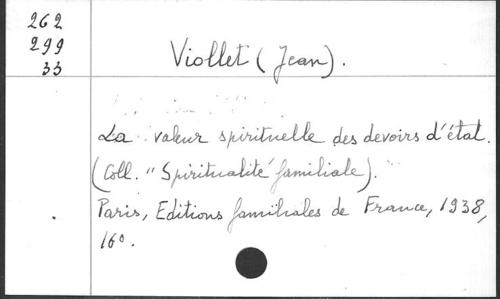 262
299
33
Viollet (Jean).
La valeur spirituelle des devoirs d'état.
(Coll. "Spiritualité familiale)."
Paris, Editions familiales de France, 1938,
16°.